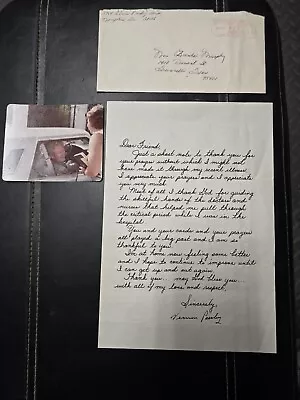 Dear Friend,
Just a short note to thank you for
your prayers without which I might not
have made it through my recent illness
I appreciate your prayers and I appreciate
you very much.
Most of all I thank God for guiding
the skillful hands of the doctors and
nurses that helped me pull through
the critical period while I was in the
hospital
You and your cards and your prayers
all played a big part and I am so
thankful to you!
I'm at home now feeling some better
and I hope to continue to improve until
I can get up and out again
Thank you. may God bless you
with all my love and respect.
Sincerely,
Vernon